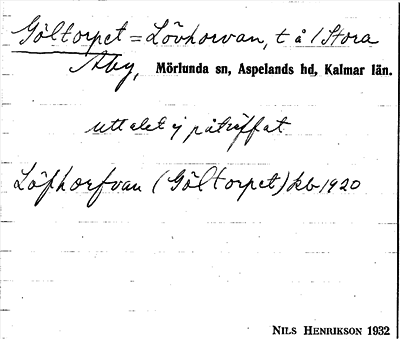 Göltorpet = Lövhorvan, t å 1 Stora
Åby, Mörlunda sn, Aspelands hd, Kalmar län.
uttalet ej påträffat
Löfhorfvan (Göltorpet) kb 1920
NILS HENRIKSON 1932